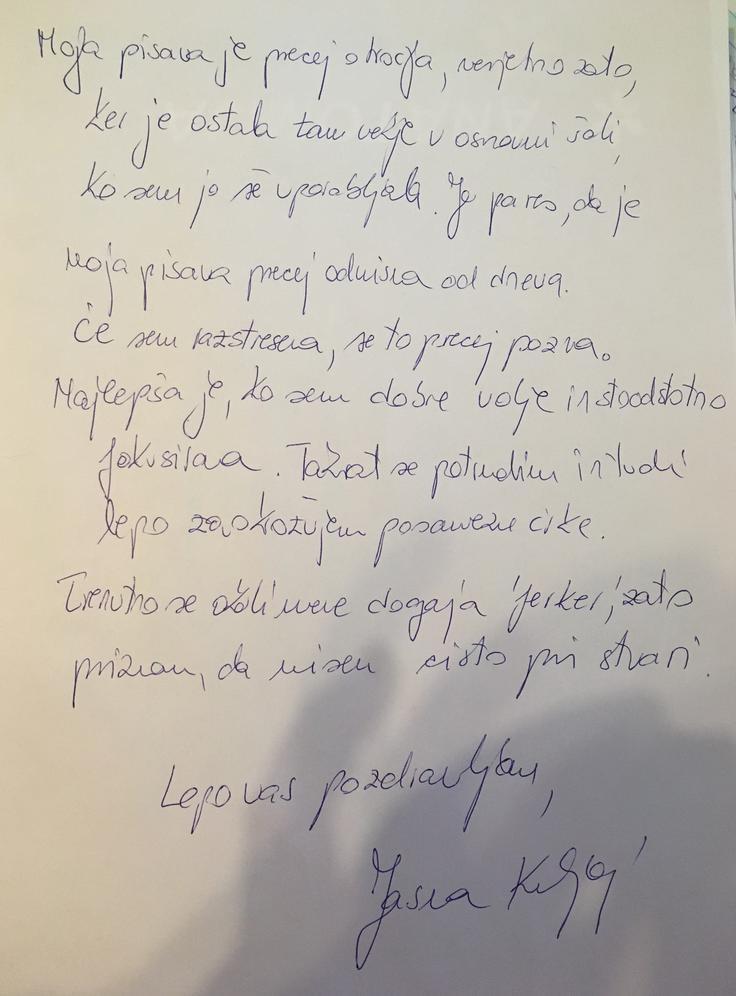 Moja pisava je precej otročja, verjetno zato,
ker je ostala tam nekje v osnovni šoli,
ko sem jo še uporabljala. Je pa res, da je
moja pisava precej odvisna od dneva.
Če sem raztresena, se to precej pozna.
Najlepša je, ko sem dobre volje in stoodstotno
fokusirana. Takrat se potrudim in tudi
lepo zaokrožujem posamezne črke.
Trenutno se okoli mene dogaja 'žerker', zato
priznam, da nisem čisto pri stvari.
Lepo vas pozdravljam,
Jasna